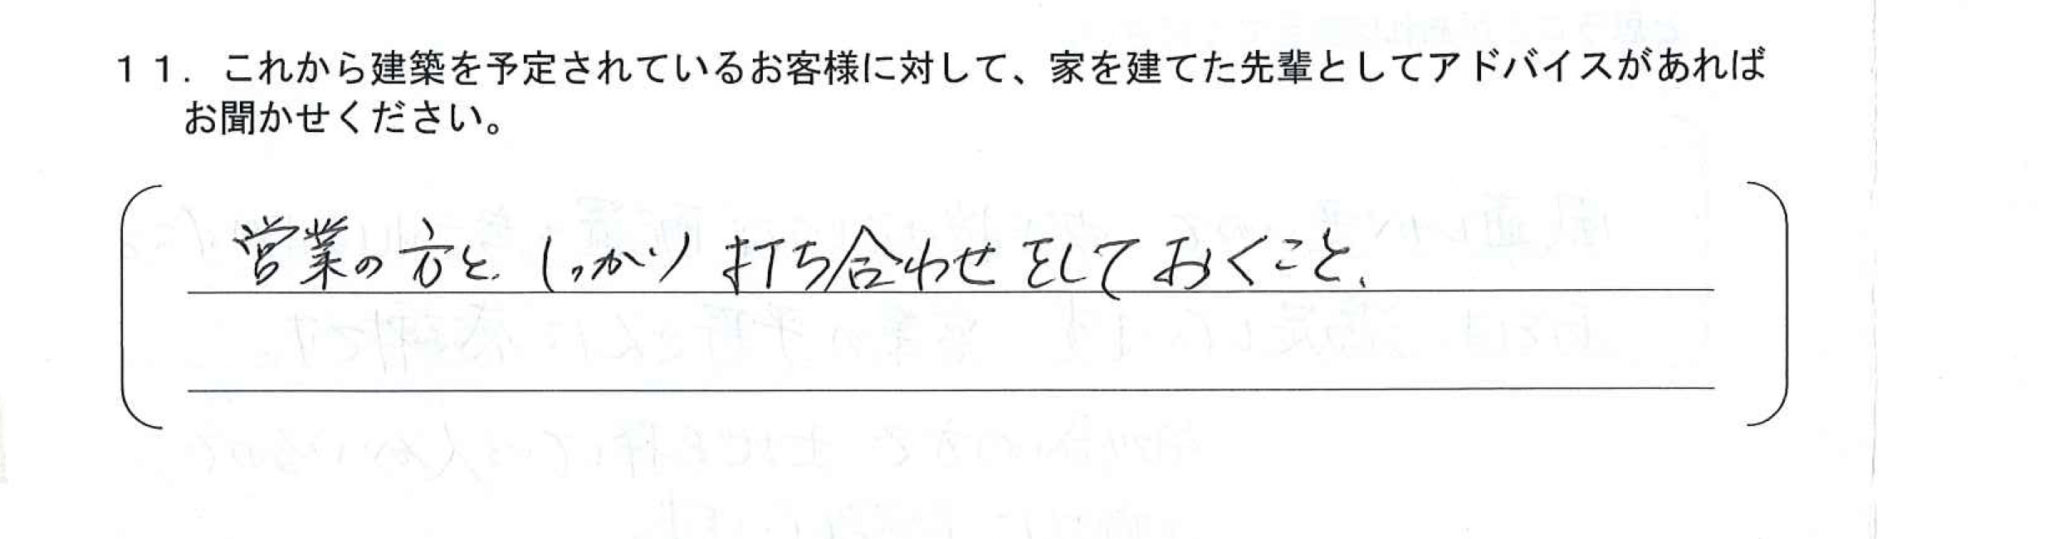 11．これから建築を予定されているお客様に対して、家を建てた先輩としてアドバイスがあれば
お聞かせください。
営業の方と、しっかり打ち合わせをしておくこと、